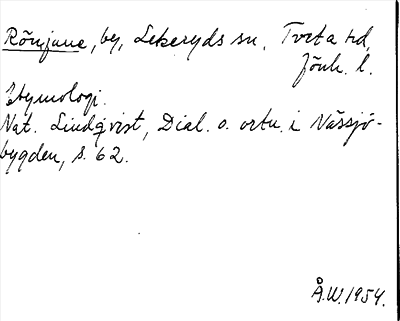 Rõnjune, by, Lekeryds sn. Tveta hd,
Jönk. l.
Etymologi.
Nat. Lindqvist, Dial. o. ortn. i Nässjö-
bygden, s. 62.
Å.W. 1954.